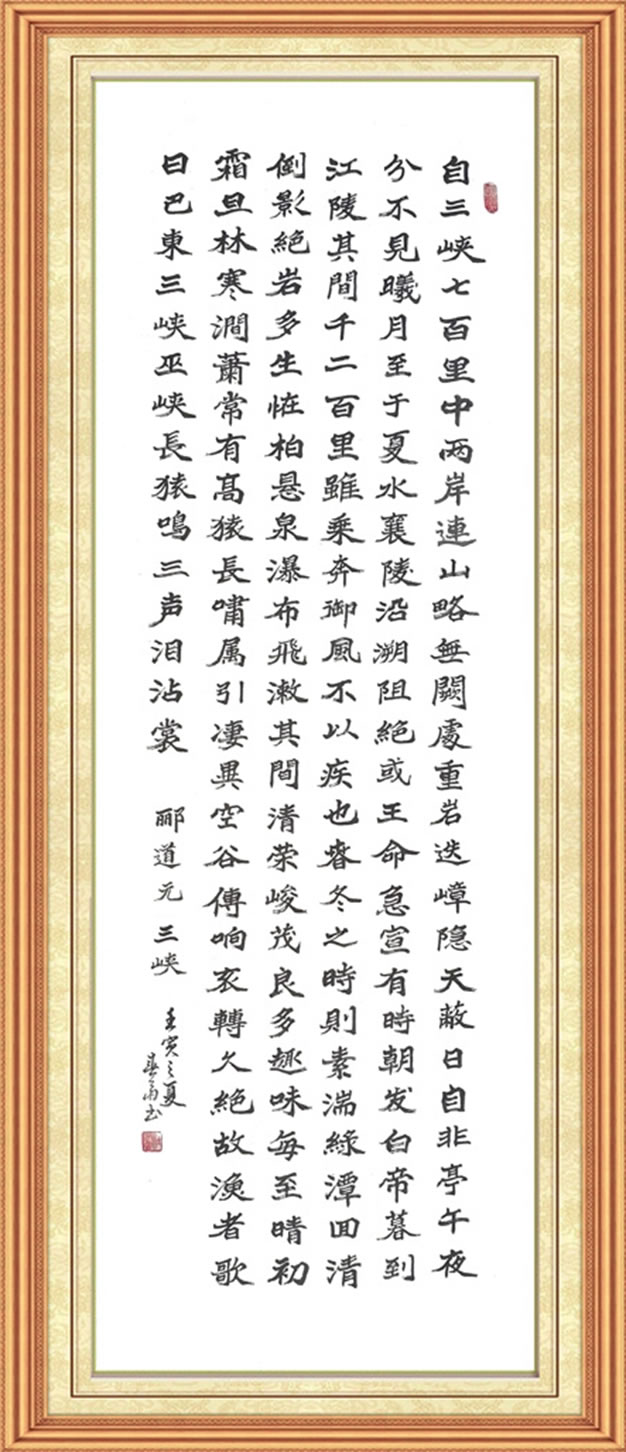 自三峡七百里中两岸連山略無闕處重岩迭嶂隐天蔽日自非亭午夜
分不見曦月至于夏水襄陵沿溯阻絕或王命急宣有時朝发白帝暮到
江陵其間千二百里雖乘奔御風不以疾也春冬之時則素湍綠潭回清
倒影絕岩多生怪柏悬泉瀑布飛漱其間清荣峻茂良多趣味每至晴初
霜旦林寒澗蕭常有高猿長啸属引凄異空谷傳响哀轉久絕故漁者歌
曰巴東三峡巫峡長猿鳴三声泪沾裳 郦道元 三峡 壬寅之夏